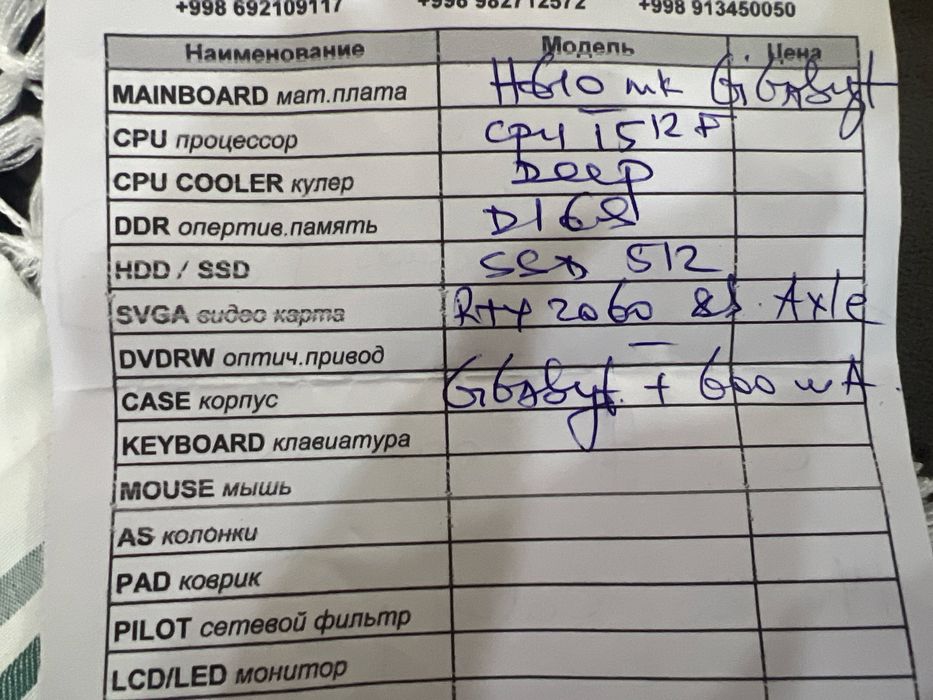 +998 692109117 +998 982712572 +998 913450050
Наименование Модель Цена
MAINBOARD мат.плата H610 mk GiGAByt
CPU процессор CPU i5 12 F
CPU COOLER кулер Deep
DDR опертив.память D168
HDD / SSD SSD 512
SVGA видео карта Rty 2060 8S. Axle
DVDRW оптич.привод —
CASE корпус GiGAByt + 600 wA.
KEYBOARD клавиатура
MOUSE мышь
AS колонки
PAD коврик
PILOT сетевой фильтр
LCD/LED монитор